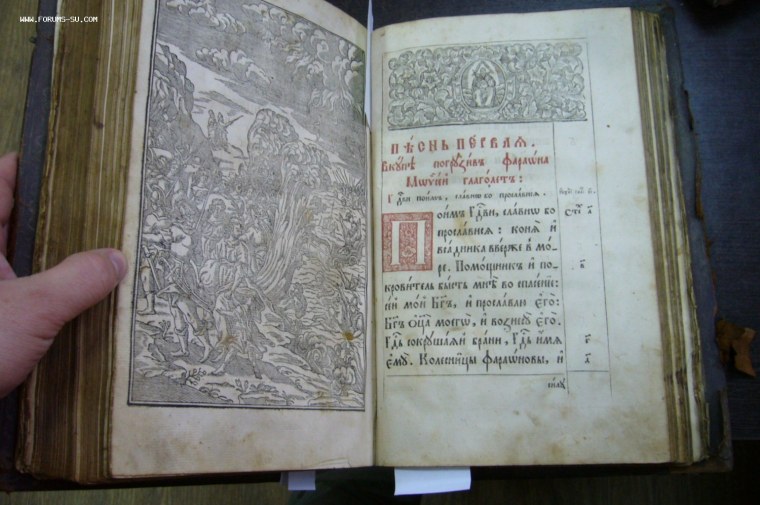 WWW.FORUMS-SU.COM
ПѢ́СНЬ ПЕ́РВАЯ.
Вкꙋ́пѣ погрꙋзи́въ фараѡ́на
Мѡѷсе́й глаго́летъ:
Гдⷭ҇ви пои́мъ, сла́внѡ бо просла́вися.
Пои́мъ Гдⷭ҇ви, сла́внѡ бо
просла́вися: коня̀ и҆
вса́дника вве́рже въ мо́-
ре. Помо́щникъ и҆ по-
крови́тель бы́сть мнѣ̀ во спасе́нїе:
се́й мо́й Бг҃ъ, и҆ просла́влю є҆го̀:
Бг҃ъ ѻ҆ц҃а̀ моегѡ̀, и҆ вознесꙋ̀ є҆го̀.
Гдⷭ҇ь сокрꙋша́яй бра́ни, Гдⷭ҇ь и҆́мя
є҆мꙋ̀. Колєсни́цы фараѡ́новы, и҆
си́лꙋ